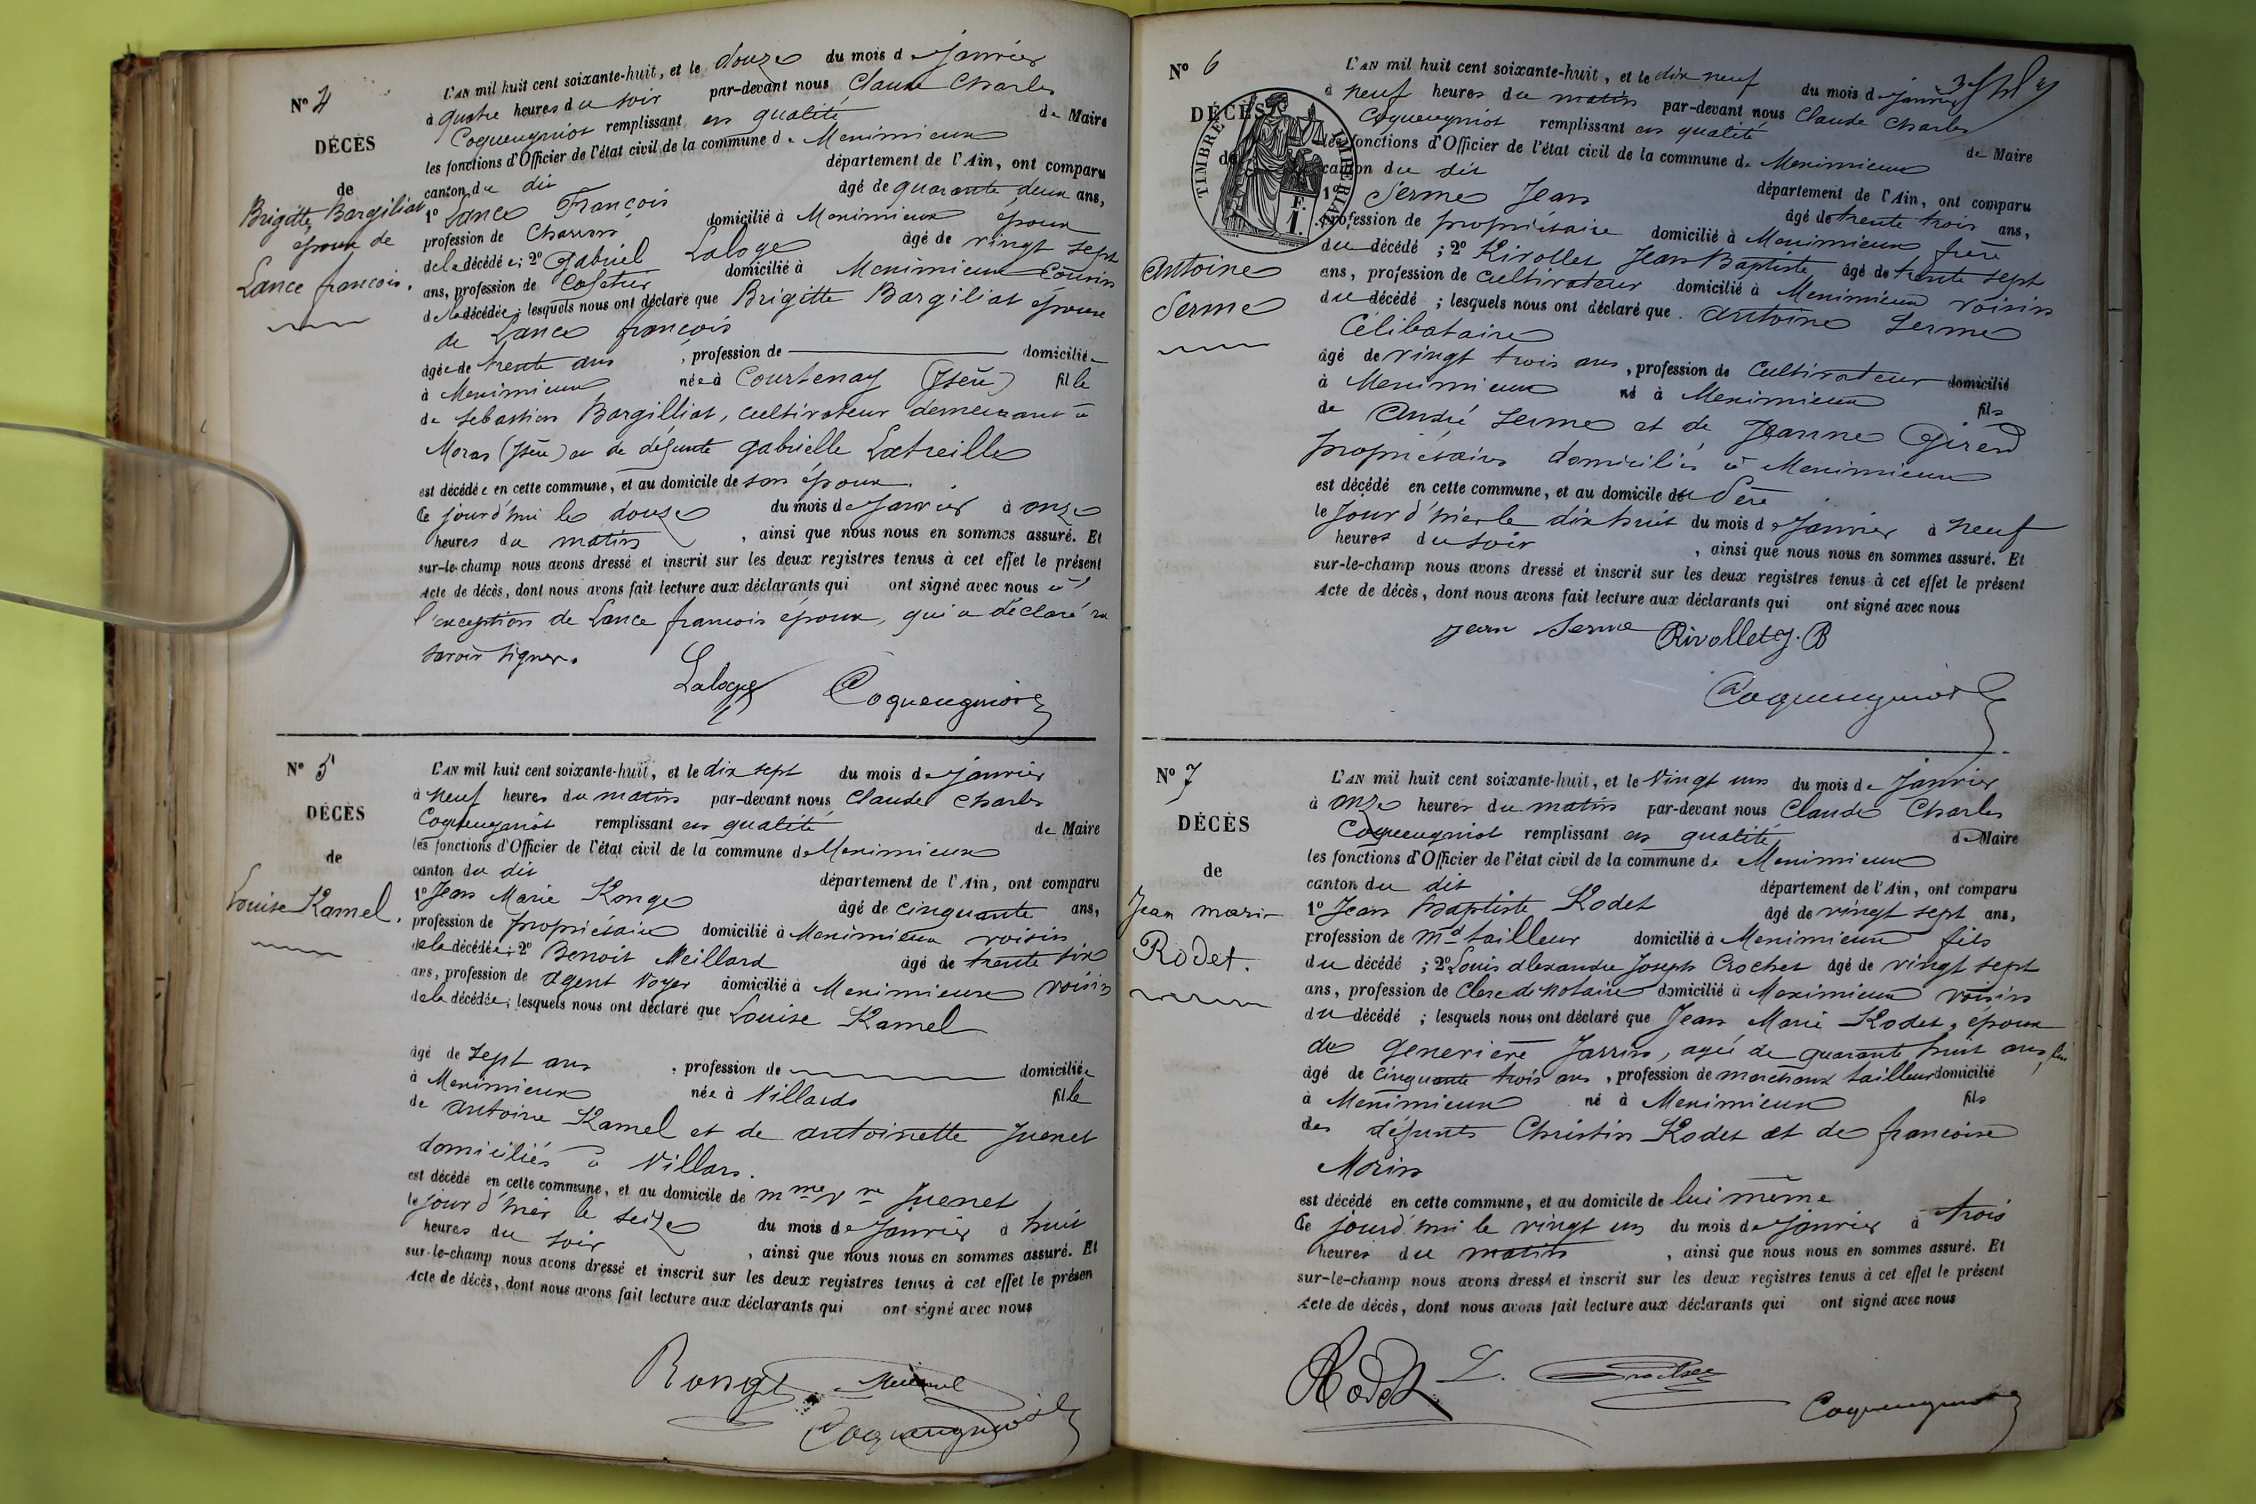 N° 4
DÉCÈS
de
Brigitte Bargiliat
épouse de
Lance françois.
L'AN mil huit cent soixante-huit, et le douze du mois de Janvier
à quatre heures du soir par-devant nous Claude Charles
Coqueugniot remplissant en qualité de Maire
les fonctions d'Officier de l'état civil de la commune de Meximieux
canton du dit département de l'Ain, ont comparu
1° Lance François âgé de quarante deux ans,
profession de Charron domicilié à Meximieux époux
de la décédée; 2° Gabriel Laloge âgé de vingt sept
ans, profession de Cafetier domicilié à Meximieux Cousin
de la décédée; lesquels nous ont déclaré que Brigitte Bargiliat épouse
de Lance françois
âgée de trente ans, profession de domiciliée
à Meximieux née à Courtenay (Isère) fille
de Sébastien Bargilliat, cultivateur demeurant à
Moras (Isère) et de défunte gabrielle Latreille
est décédée en cette commune, et au domicile de son époux.
Ce jourd'hui le douze du mois de Janvier à onze
heures du matin, ainsi que nous nous en sommes assuré. Et
sur-le-champ nous avons dressé et inscrit sur les deux registres tenus à cet effet le présent
Acte de décès, dont nous avons fait lecture aux déclarants qui ont signé avec nous à
l'exception de Lance francois époux, qui a déclaré ne
savoir signer.
Laloge Coqueugniot
N° 5
DÉCÈS
de
Louise Ramel.
L'AN mil huit cent soixante-huit, et le dix sept du mois de Janvier
à neuf heures du matin par-devant nous Claude Charles
Coqueugniot remplissant en qualité de Maire
les fonctions d'Officier de l'état civil de la commune de Meximieux
canton du dit département de l'Ain, ont comparu
1° Jean Marie Ronge âgé de cinquante ans,
profession de propriétaire domicilié à Meximieux voisin
de la décédée; 2° Benoit Meillard âgé de trente six
ans, profession de agent Voyer domicilié à Meximieux voisin
de la décédée; lesquels nous ont déclaré que Louise Ramel
âgé de sept ans, profession de domiciliée
à Meximieux née à Villards fille
de antoine Ramel et de antoinette Juenet
domiciliés à Villars.
est décédé en cette commune, et au domicile de Mme Vve Juenet
le jour d'hier le seize du mois de Janvier à huit
heures du soir, ainsi que nous nous en sommes assuré. Et
sur-le-champ nous avons dressé et inscrit sur les deux registres tenus à cet effet le présen
Acte de décès, dont nous avons fait lecture aux déclarants qui ont signé avec nous
Ronge Meillard
Coqueugniot
N° 6
DÉCÈS
de
TIMBRE IMPÉRIAL
F.
1.
Antoine
Serme
L'AN mil huit cent soixante-huit, et le dix neuf du mois de Janvier
à neuf heures du matin par-devant nous Claude Charles
Coqueugniot remplissant en qualité de Maire
les fonctions d'Officier de l'état civil de la commune de Meximieux
canton du dit département de l'Ain, ont comparu
1° Serme Jean âgé de trente trois ans,
profession de propriétaire domicilié à Meximieux frère
du décédé; 2° Rivollet Jean Baptiste âgé de trente sept
ans, profession de cultivateur domicilié à Meximieux voisin
du décédé; lesquels nous ont déclaré que antoine Serme
Célibataire
âgé de vingt trois ans, profession de Cultivateur domicilié
à Meximieux né à Meximieux fils
de André Serme et de Jeanne Girer
propriétaires domiciliés à Meximieux
est décédé en cette commune, et au domicile du Père
le jour d'hier le dix huit du mois de Janvier à neuf
heures du soir, ainsi que nous nous en sommes assuré. Et
sur-le-champ nous avons dressé et inscrit sur les deux registres tenus à cet effet le présent
Acte de décès, dont nous avons fait lecture aux déclarants qui ont signé avec nous
Jean Serme Rivollet J. B
Coqueugniot
N° 7
DÉCÈS
de
Jean marie
Rodet.
L'AN mil huit cent soixante-huit, et le Vingt un du mois de Janvier
à onze heures du matin par-devant nous Claude Charles
Coqueugniot remplissant en qualité de Maire
les fonctions d'Officier de l'état civil de la commune de Meximieux
canton du dit département de l'Ain, ont comparu
1° Jean Baptiste Rodet âgé de vingt sept ans,
profession de Md tailleur domicilié à Meximieux fils
du décédé; 2° Louis alexandre Joseph Crochet âgé de vingt sept
ans, profession de Clerc de Notaire domicilié à Meximieux voisin
du décédé; lesquels nous ont déclaré que Jean Marie Rodet, époux
de genevieve Jarrin, agée de quarante huit ans, lui
âgé de cinquante trois ans, profession de marchand tailleur domicilié
à Meximieux né à Meximieux fils
des défunts Christin Rodet et de francoise
Morin
est décédé en cette commune, et au domicile de lui même
Ce jourd'hui le vingt un du mois de Janvier à trois
heures du matin, ainsi que nous nous en sommes assuré. Et
sur-le-champ nous avons dressé et inscrit sur les deux registres tenus à cet effet le présent
Acte de décès, dont nous avons fait lecture aux déclarants qui ont signé avec nous
Rodet L. Crochet
Coqueugniot